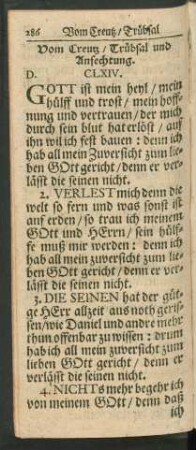 286 Vom Creutz / Trübsal
Vom Creutz / Trübsal und
Anfechtung.
D. CLXIV.
GOTT ist mein heyl / mein
hülff und trost / mein hoff-
nung und vertrauen / der mich
durch sein blut hat erlöst / auf
ihn wil ich fest bauen : denn ich
hab all mein Zuversicht zum lie-
ben GOtt gericht / denn er ver-
lässt die seinen nicht.
2. VERLEST mich denn die
welt so fern und was sonst ist
auf erden / so trau ich meinem
GOtt und HErrn / sein hülf-
fe muß mir werden : denn ich
hab all mein zuversicht zum lie-
ben GOtt gericht / denn er ver-
lässt die seinen nicht.
3. DIE SEINEN hat der güt-
ge HErr allzeit aus noth geris-
sen / wie Daniel und andre mehr
thun offenbar zu wissen : drum
hab ich all mein zuversicht zum
lieben GOtt gericht / denn er
verlässt die seinen nicht.
4. NICHTs mehr begehr ich
von meinem GOtt / denn daß
ich